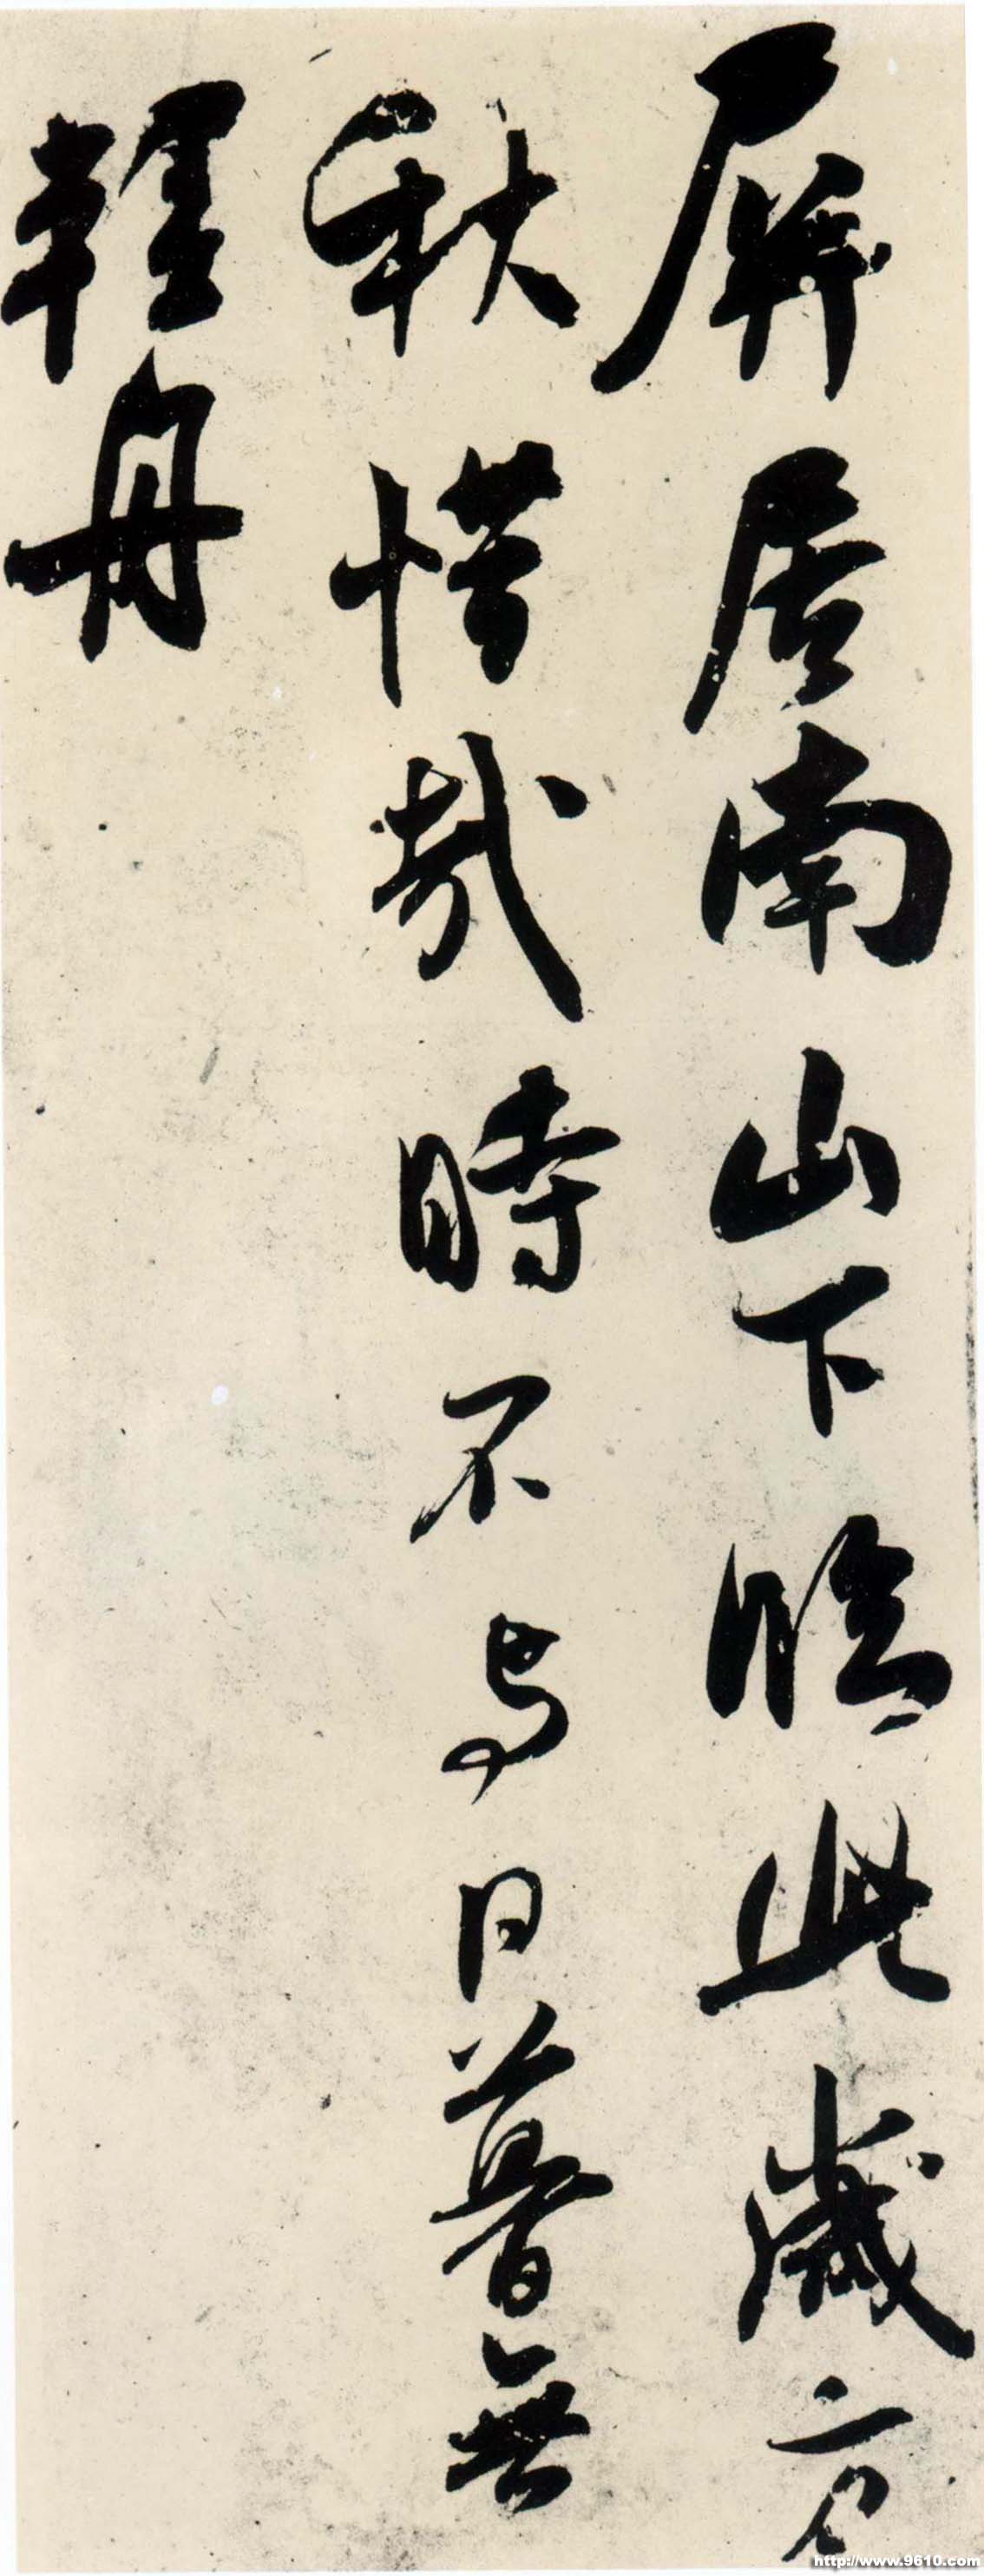 屏居南山下臨此歲方
秋惜哉時不與日暮無
輕舟
http://www.9610.com